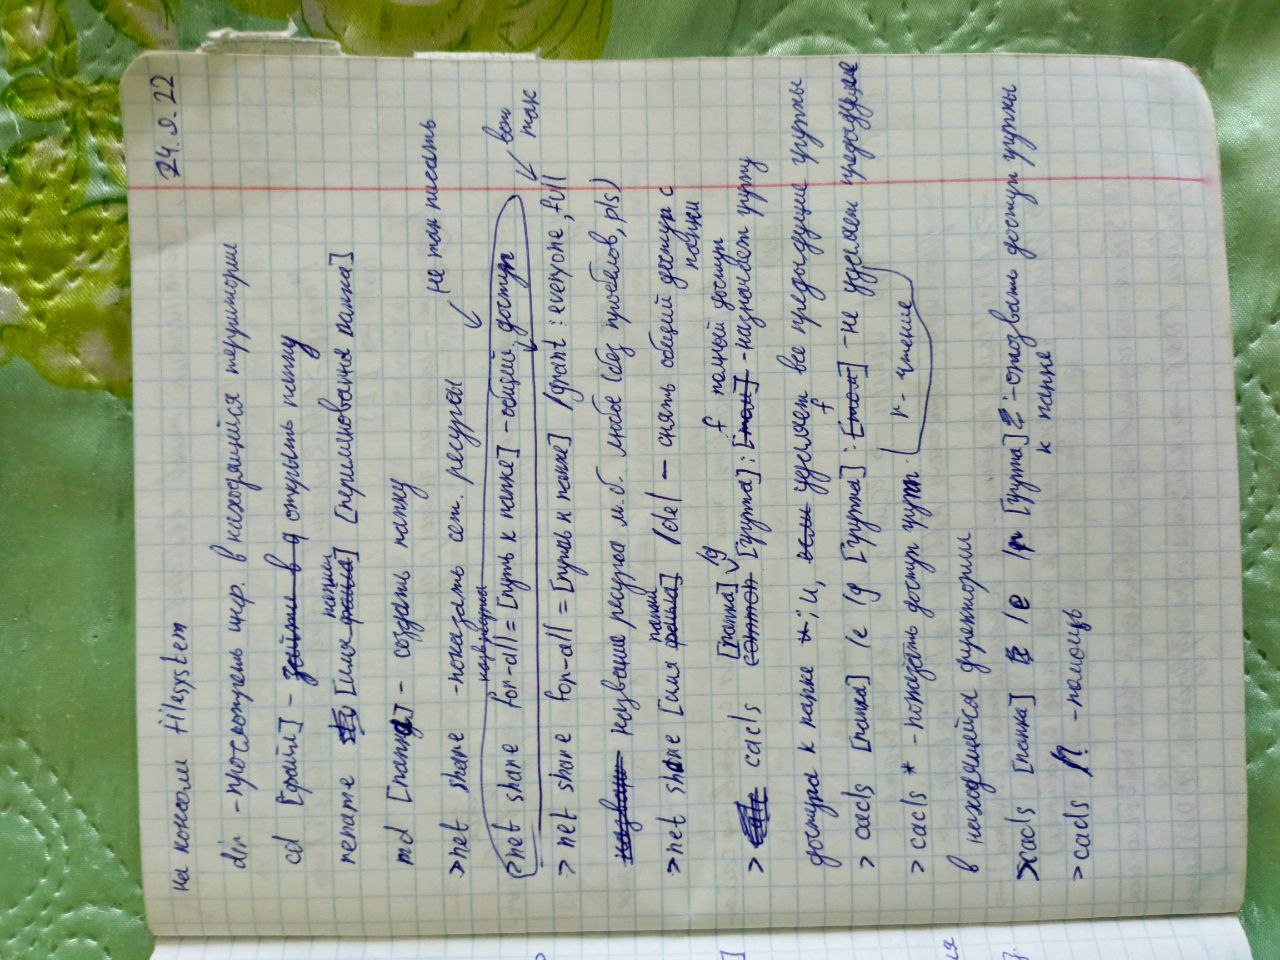 24.9.22
на консоли filesystem
dir - просмотреть дир. в находящейся территории
cd [файл] - зайти в д открыть папку
rename [имя файла папки] [переименованная папка]
md [папка] - создать папку
>net share - показать сет. ресурсы
не так писать
>net share for-all = [путь к папке] - общий доступ
назв. ресурса
вот так
> net share for-all = [путь к папке] /grant : everyone, full
название название ресурса м.б. любое (без пробелов, pls)
>net share [имя файла папки] /del — снять общий доступ с папки
f полный доступ
> cacls common [папка] /g [группа] : [том] - назначает группу
доступа к папке и, если удаляет все предыдущие группы
> cacls [папка] /e /g [группа] : [том] f - не удаляет предыдущие
r - чтение
> cacls * - показать доступ групп
в находящейся директории
>xacls [папка] /e /r [группа] - отозвать доступ группы к папке
> cacls /? - помощь